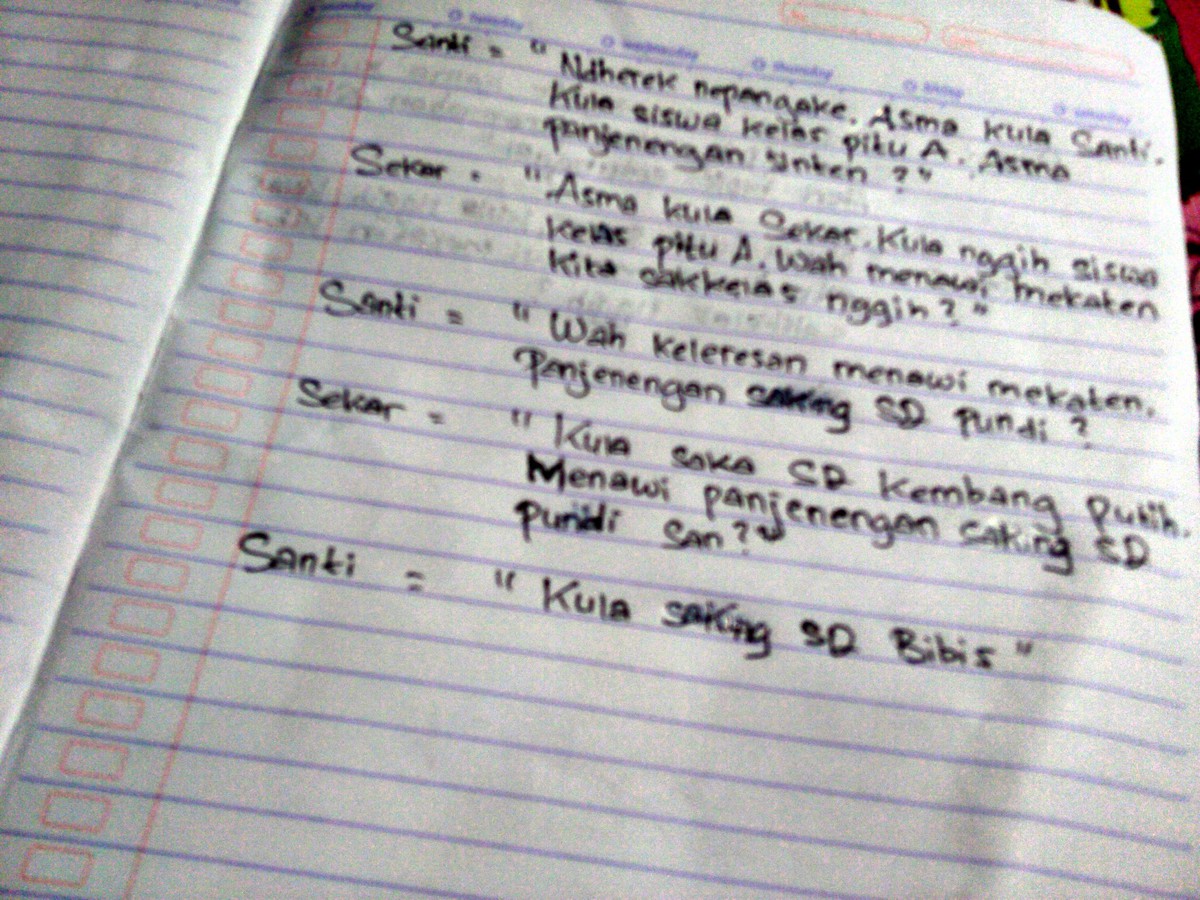 tuesday wednesday thursday friday saturday
Santi = "Ndherek nepangake. Asma kula Santi.
Kula siswa kelas pitu A. Asma
panjenengan sinten ?"
Sekar = "Asma kula Sekar. Kula nggih siswa
kelas pitu A. Wah menawi mekaten
kita sakkelas nggih ?"
Santi = "Wah keleresan menawi mekaten.
Panjenengan saking SD pundi ?
Sekar = "Kula saka SD Kembang Putih.
Menawi panjenengan saking SD
pundi San ?"
Santi = "Kula saking SD Bibis"